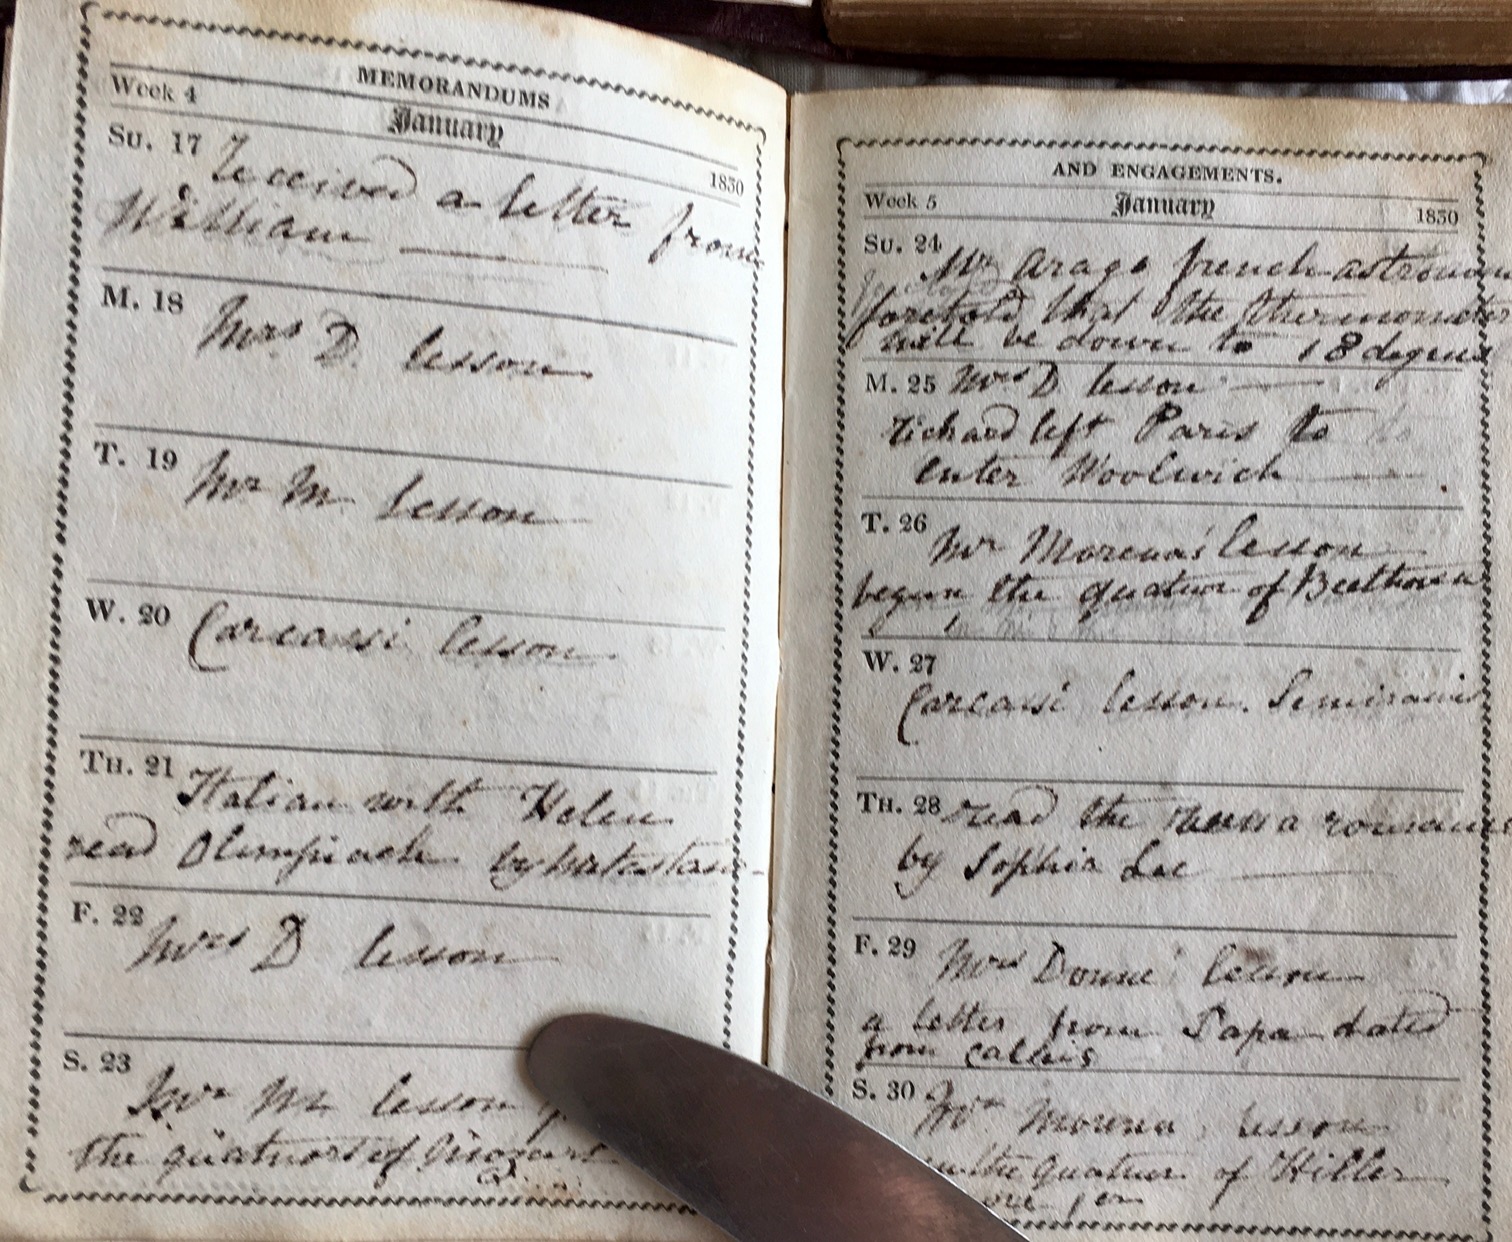 MEMORANDUMS
Week 4
January
1830
SU. 17 received a letter from
William
M. 18
Mrs D. lesson
T. 19
Mr M. lesson
W. 20 Carcassi lesson
TH. 21 Italian with Helen
read Olimpiade by Metastasio
F. 22
Mrs D lesson
S. 23
Mr M lesson
the quatuors of Mozart
AND ENGAGEMENTS.
Week 5
January
1830
SU. 24
Mr Arago french astronom
foretold that the thermometer
will be down to 18 degrees
M. 25 Mrs D lesson
richard left Paris to
enter Woolwich
T. 26
Mr Morenas' lesson
begun the quatuor of Beethoven
W. 27
Carcassi lesson. Semiramis
TH. 28 read the a romance
by Sophia Lee
F. 29
Mrs Donne' lesson
a letter from Papa dated
from Callais
S. 30
Mr Morena lesson
the quatuor of Hiller